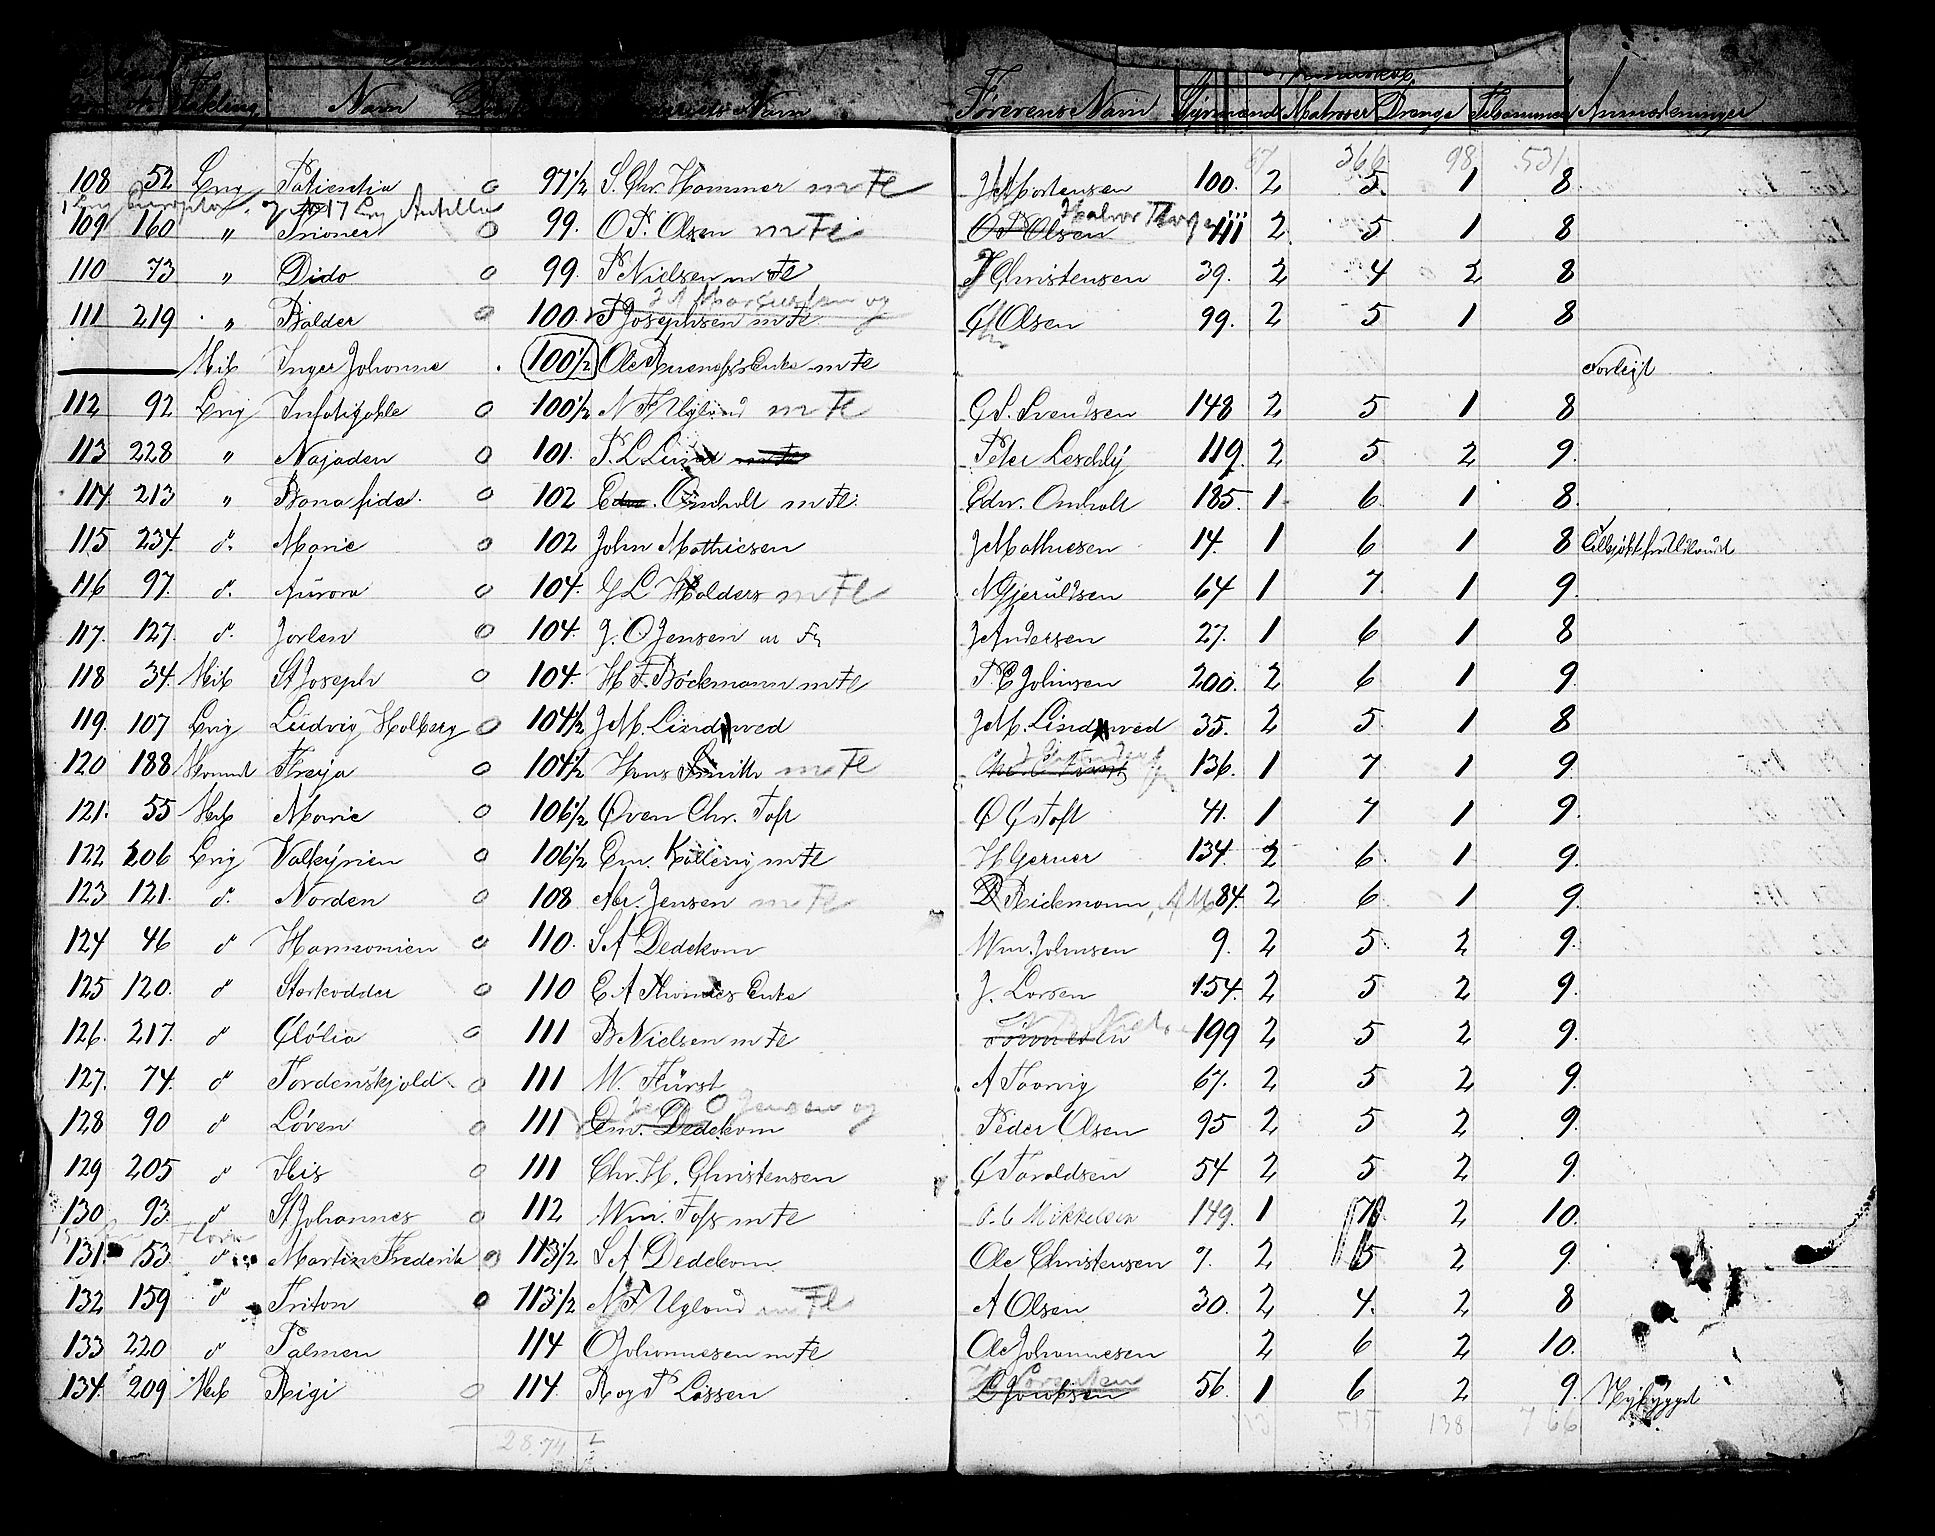 Takling Navn Navn Førerens Navn Styrmænd Matroser Drenge Tilsammen Anmærkninger
67 366 98 531
108 52 Brig Patientia o 97 1/2 S. Chr. Hammer m Fl J Mortensen 100. 2 5 1 8
Brig og No 17 Brig Antilla
Halvor
109 160 " Trioner o 99. O P. Olsen m Fl O P Olsen 111 2 5 1 8
110 73 " Dido o 99. P Nielsen m Fl J Christensen 39. 2 4 2 8
og
111 219 " Balder o 100. F Josephsen m Fl C Olsen 99. 2 5 1 8
Inger Johanne 100 1/2 Ole Enke m Fl
112 92 Brig o 100 1/2 N F Ugland m Fl C S. Svendsen 148 2 5 1 8
113 228 " Najaden o 101. P. L Lund m Fl Peter Leschly 119. 2 5 2 9.
114. 213 " Bona fide. o 102 Edw. Omholt m Fl. Edw. Omholt 185. 1 6 1 8.
115 234. d. Marie o 102 John Mathiesen J Mathiesen 14. 1 6 1 8
116 97. d. Aurora o 104. G L Holders m Fl N Gjeruldsen 64 1 7. 1 9.
117. 127. d. Jorlen o 104. J. O Jensen m Fl J Andersen 27. 1 6 1 8
118 34. St Joseph o 104. H F. Bockmann m Fl P. C Johnsen 200. 2 6 1 9.
119. 107 Brig Ludvig Holberg o 104 1/2 J M. Lindtved J M. Lindtved 35. 2 5 1 8
120 188 Freya o 104 1/2 Hans Smith m Fl 136. 1 7 1 9.
121. 55 Marie o 106 1/2 Oven Chr. Toft O C Toft 41. 1 7 1 9.
122 206 Brig Valkyrien o 106 1/2 Em. Kallevig m Fl H Gerner 134. 2 6 1 9.
123 121. d. Norden o 108 Abr. Jensen m Fl Rickmann, 84. 2 6 1 9.
124 46 d Harmonien o 110. S A Dedekam Wm. Johnsen 9. 2 5 2 9.
125 120. d Storkodder o 110 E A Thommes Enke J. Larsen 154. 2 5 2 9.
126. 217. d Clölia o 111 B Nielsen m Fl 199 2 5 2 9.
127. 74. d Tordenskjold o 111 W. Fürst A Taarvig 67. 2 5 2 9.
O Jensen og
128 90 d Löven o 111 Em. Dedekam Peder Olsen 95 2 5 2 9.
129 205 d His o 111 Chr. H. Christensen C Taraldsen 54 2 5 2 9.
130 93. d St Johannes o 112 Wm. Foss m Fl O. C Mikkelsen 149. 1 7 2 10.
131. 53. d Martin Frederik o 113 1/2 S A Dedekam Ole Christensen 7. 2 5 2 9.
132 159 d Triton o 113 1/2 N F Ugland m Fl A Olsen 30. 2 4. 2 8
133 220 d Palmen 114 O Johannesen m Fl Ole Johannesen 2 6 2 10.
134. 209 Rigi o 114. R og P Lassen 56. 1 6 2 9. Nybygget
2874 113 515 138 766